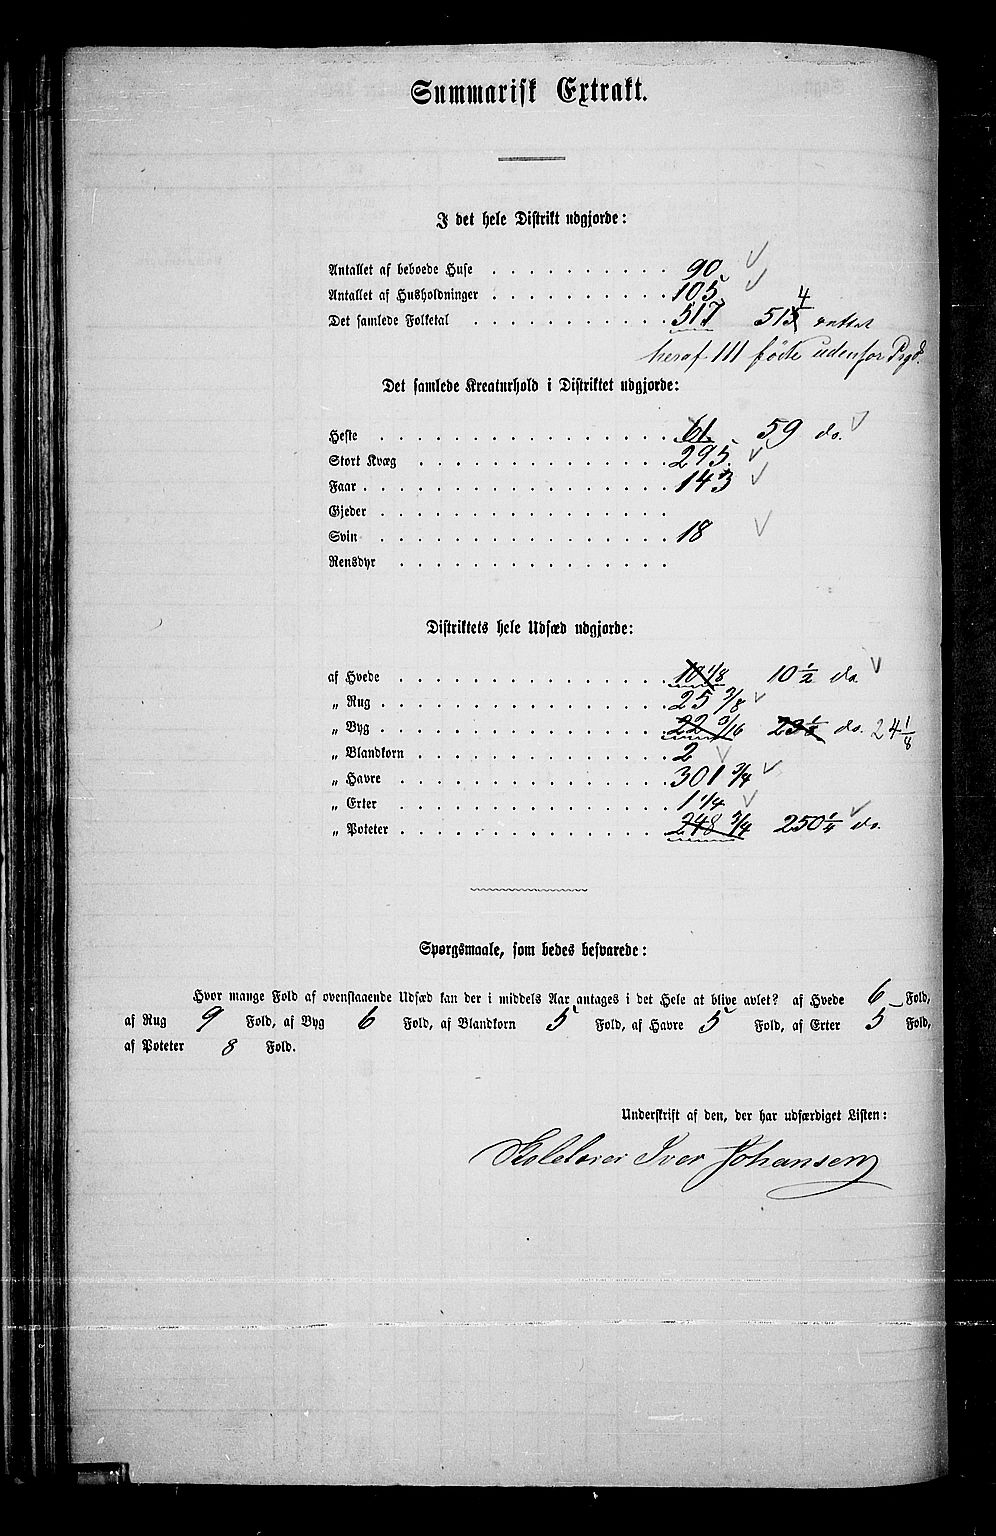 Summarisk Extrakt.
I det hele Distrikt udgjorde:
Antallet af beboede Huse . . . . . . . . . . 90 ✓
Antallet af Husholdninger . . . . . . . . . . 105 ✓
Det samlede Folketal . . . . . . . . . . . 517 513 4 rettet
heraf 111 fødte udenfor Prgd.
Det samlede Kreaturhold i Distriktet udgjorde:
Heste . . . . . . . . . . . . . . . 61. 59 do. ✓
Stort Kvæg . . . . . . . . . . . . . 295. ✓
Faar . . . . . . . . . . . . . . . . 143 ✓
Gjeder . . . . . . . . . . . . . . .
Svin . . . . . . . . . . . . . . . 18 ✓
Rensdyr . . . . . . . . . . . . . .
Distriktets hele Udsæd udgjorde:
af Hvede . . . . . . . . . . . . . . 10 1/8 10 1/2 do. ✓
„ Rug . . . . . . . . . . . . . . . 25 3/8 ✓
„ Byg . . . . . . . . . . . . . . . 22 3/16 do. 24 1/8
„ Blandkorn . . . . . . . . . . . . . 2 ✓
„ Havre . . . . . . . . . . . . . . 301 3/4 ✓
„ Erter . . . . . . . . . . . . . . 1 1/4 ✓
„ Poteter . . . . . . . . . . . . . . 248 3/4 250 1/4 do. ✓
Spørgsmaale, som bedes besvarede:
Hvor mange Fold af ovenstaaende Udsæd kan der i middels Aar antages i det Hele at blive avlet? af Hvede 6 Fold,
af Rug 9 Fold, af Byg 6 Fold, af Blandkorn 5 Fold, af Havre 5 Fold, af Erter 5 Fold,
af Poteter 8 Fold.
Underskrift af den, der har udfærdiget Listen:
Skolelærer Iver Johansen